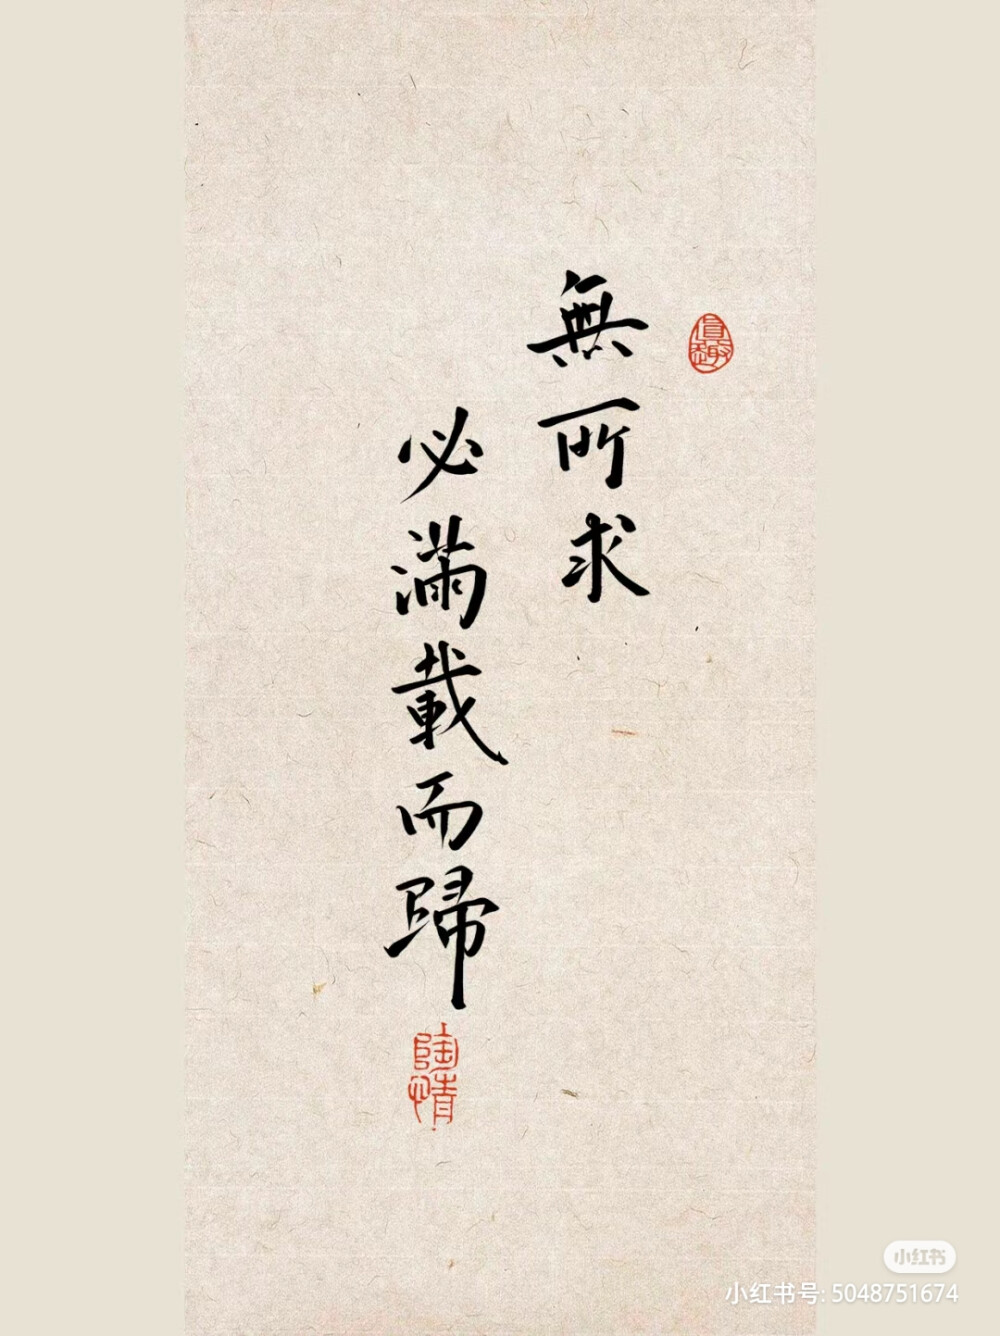 無所求
必滿載而歸
陶情
小红书
小红书号: 5048751674